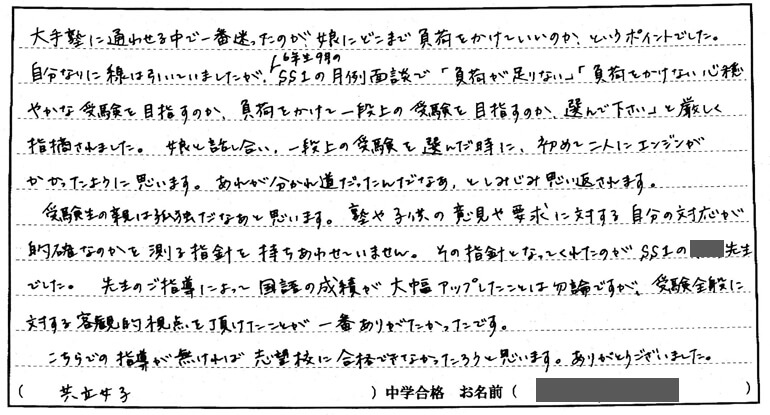 大手塾に通わせる中で一番迷ったのが、娘にどこまで負荷をかけていいのか、というポイントでした。
6年生9月の
自分なりに線は引いていましたが、SS1の月例面談で「負荷が足りない」「負荷をかけない心穏
やかな受験を目指すのか、負荷をかけて一段上の受験を目指すのか、選んで下さい」と厳しく
指摘されました。娘と話し合い、一段上の受験を選んだ時に、初めて二人にエンジンが
かかったように思います。あれが分かれ道だったんだなあ、としみじみ思い返されます。
受験生の親は孤独だなあと思います。塾や子供の意見や要求に対する自分の対応が
的確なのかを測る指針を持ちあわせていません。その指針となってくれたのがSS1の 先生
でした。先生のご指導によって国語の成績が大幅アップしたことは勿論ですが、受験全般に
対する客観的視点を頂けたことが一番ありがたかったです。
こちらでの指導が無ければ志望校に合格できなかったろうと思います。ありがとうございました。
( 共立女子 ) 中学合格 お名前 ( )